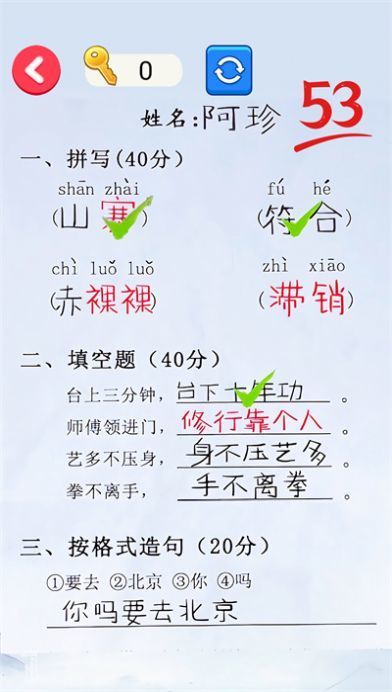 0
姓名:阿珍 53
一、拼写(40分)
shān zhài fú hé
(山寨) (符合)
chì luǒ luǒ zhì xiāo
(赤裸裸) (滞销)
二、填空题(40分)
台上三分钟,台下十年功。
师傅领进门,修行靠个人。
艺多不压身,身不压艺多。
拳不离手,手不离拳。
三、按格式造句(20分)
①要去 ②北京 ③你 ④吗
你吗要去北京